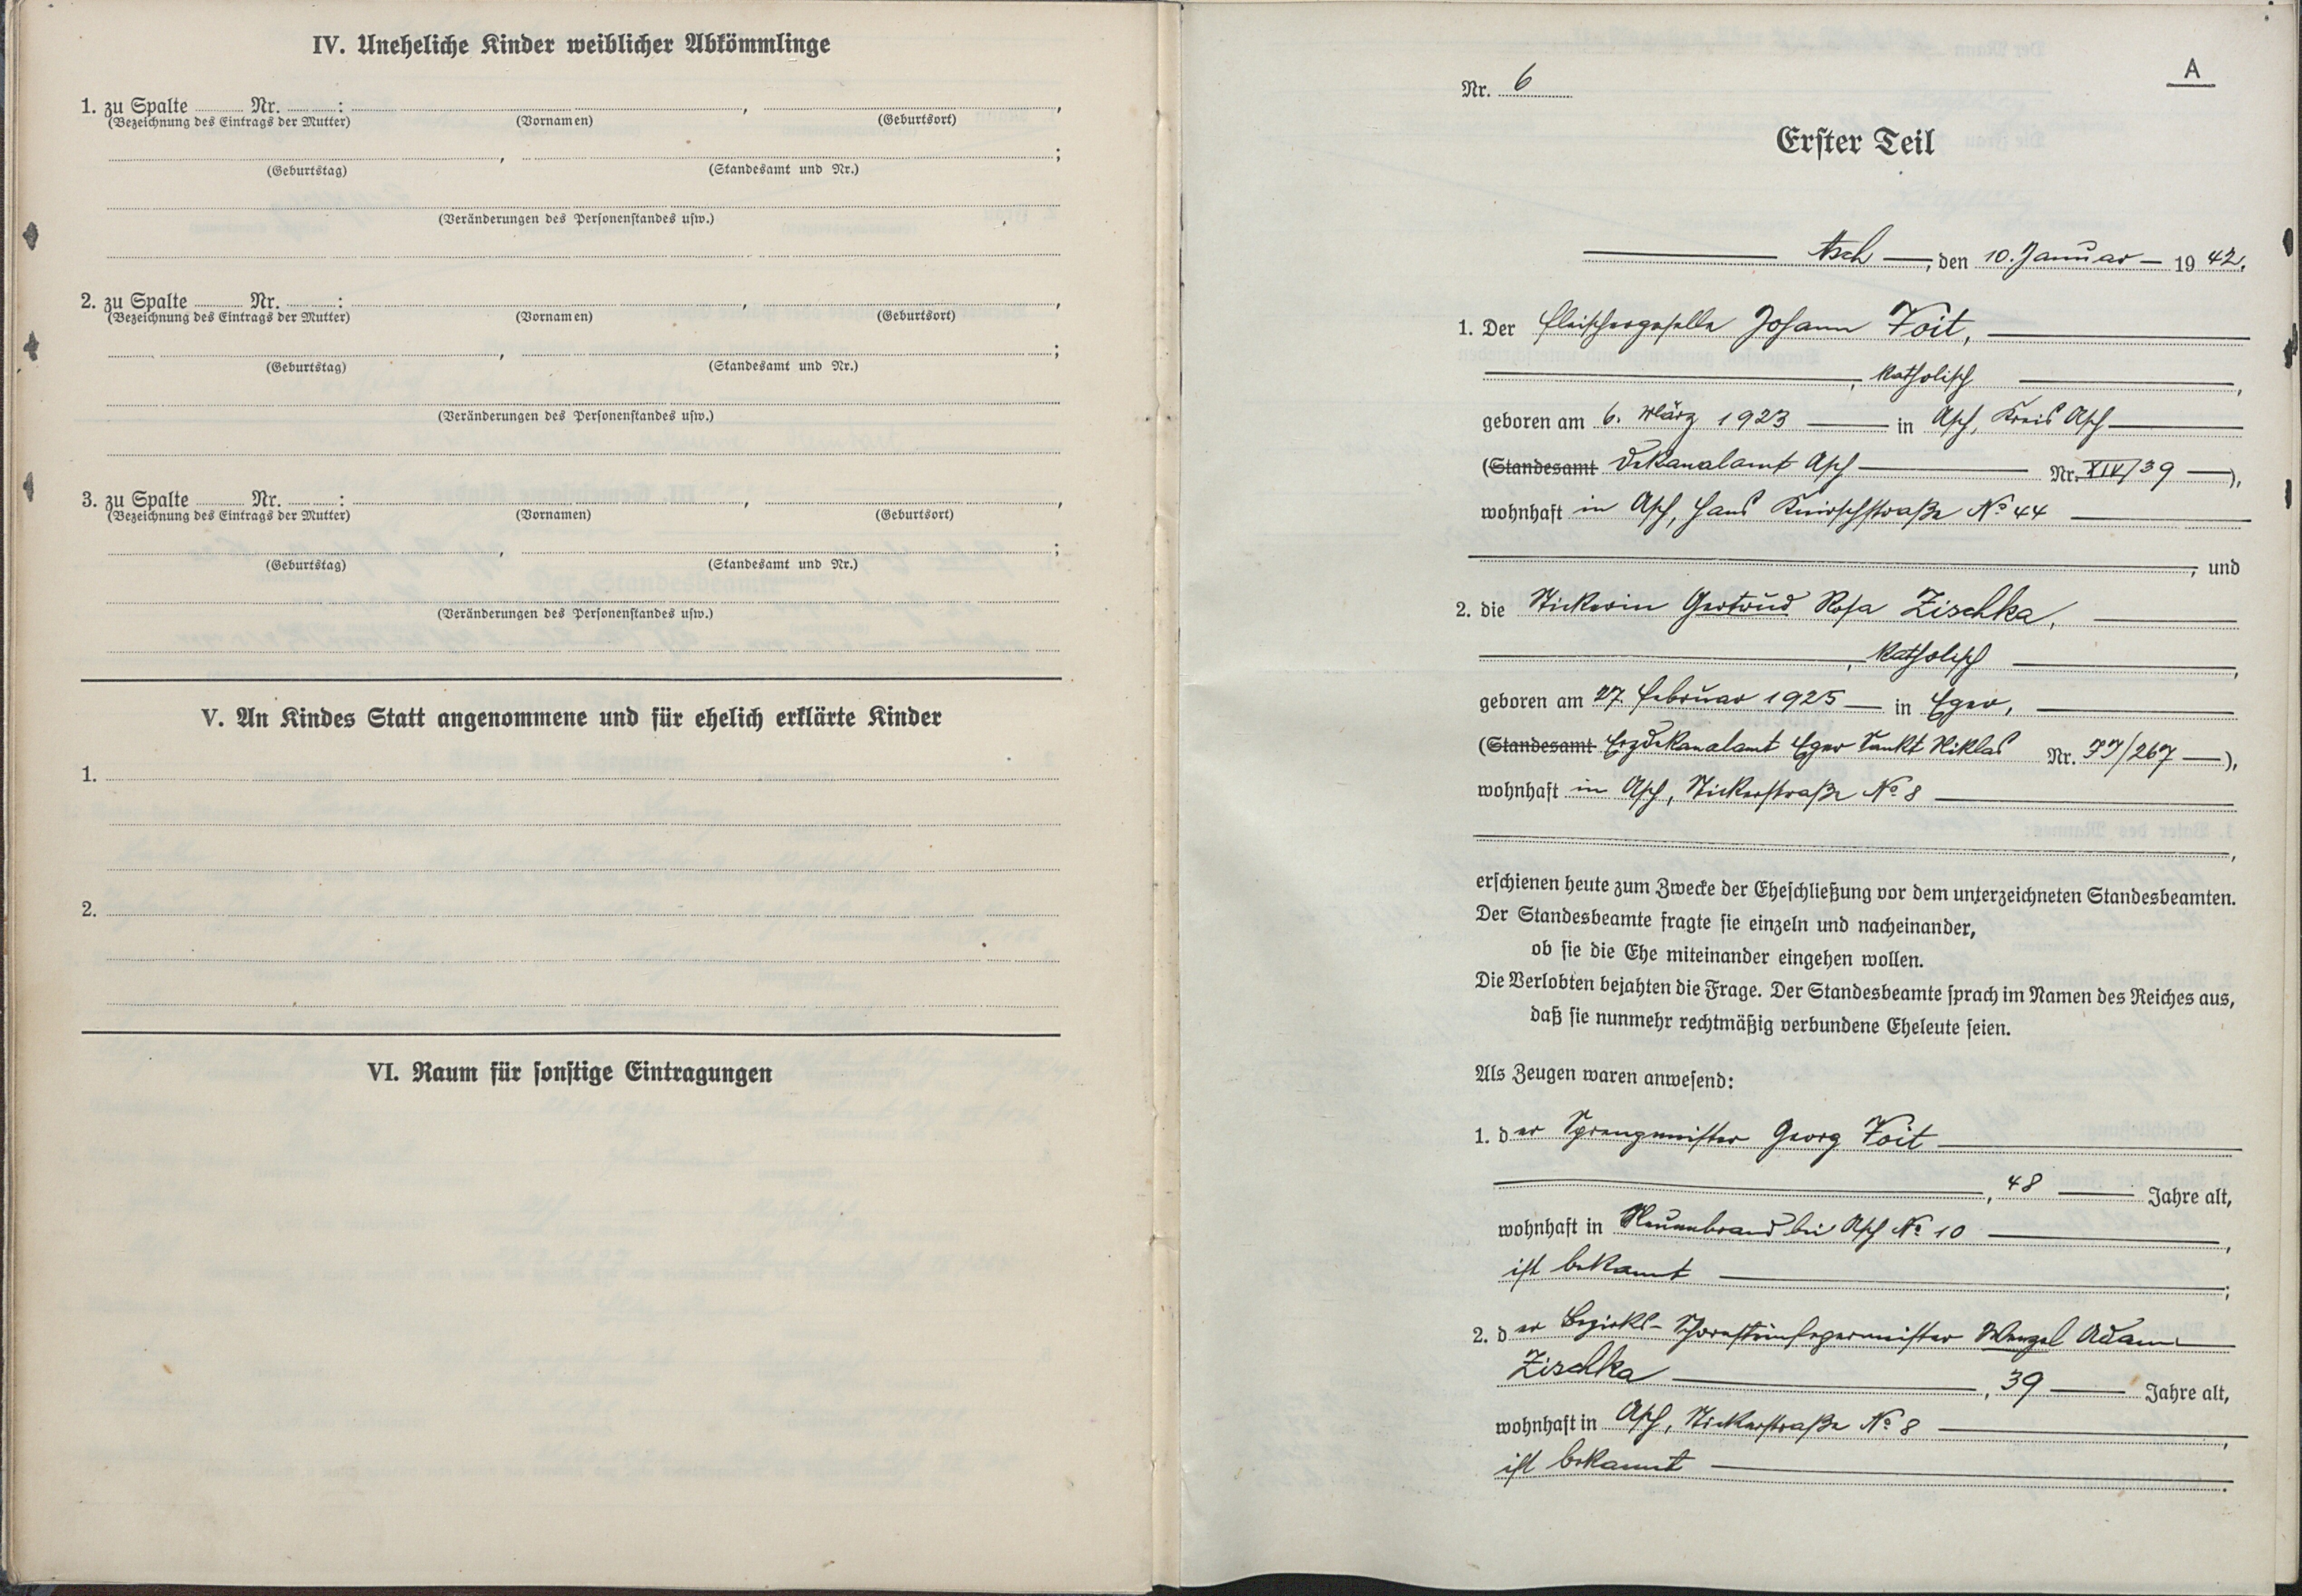 IV. Uneheliche Kinder weiblicher Abkömmlinge
1. zu Spalte ........ Nr. ........:
(Bezeichnung des Eintrags der Mutter) (Vornamen) (Geburtsort)
(Geburtstag) (Standesamt und Nr.)
(Veränderungen des Personenstandes usw.)
2. zu Spalte ........ Nr. ........:
(Bezeichnung des Eintrags der Mutter) (Vornamen) (Geburtsort)
(Geburtstag) (Standesamt und Nr.)
(Veränderungen des Personenstandes usw.)
3. zu Spalte ........ Nr. ........:
(Bezeichnung des Eintrags der Mutter) (Vornamen) (Geburtsort)
(Geburtstag) (Standesamt und Nr.)
(Veränderungen des Personenstandes usw.)
V. An Kindes Statt angenommene und für ehelich erklärte Kinder
1.
2.
VI. Raum für sonstige Eintragungen
A
Nr. 6
Erster Teil
Asch, den 10. Januar 1942.
1. Der Fleischergeselle Johann Voit,
, katholisch,
geboren am 6. März 1923 in Asch, Kreis Asch
(Standesamt Dekanalamt Asch Nr. XIV/39),
wohnhaft in Asch, Hans Knirschstraße No 44
, und
2. die Stickerin Gertrud Rosa Zischka,
, katholisch,
geboren am 27. Februar 1925 in Eger,
(Standesamt Erzdekanalamt Eger Sankt Niklas Nr. 77/267),
wohnhaft in Asch, Stickerstraße No 8
,
erschienen heute zum Zwecke der Eheschließung vor dem unterzeichneten Standesbeamten.
Der Standesbeamte fragte sie einzeln und nacheinander,
ob sie die Ehe miteinander eingehen wollen.
Die Verlobten bejahten die Frage. Der Standesbeamte sprach im Namen des Reiches aus,
daß sie nunmehr rechtmäßig verbundene Eheleute seien.
Als Zeugen waren anwesend:
1. der Sprengmeister Georg Voit
, 48 Jahre alt,
wohnhaft in Neuenbrand bei Asch No 10,
ist bekannt;
2. der Bezirks-Schornsteinfegermeister Wenzel Adam
Zischka, 39 Jahre alt,
wohnhaft in Asch, Stickerstraße No 8,
ist bekannt.